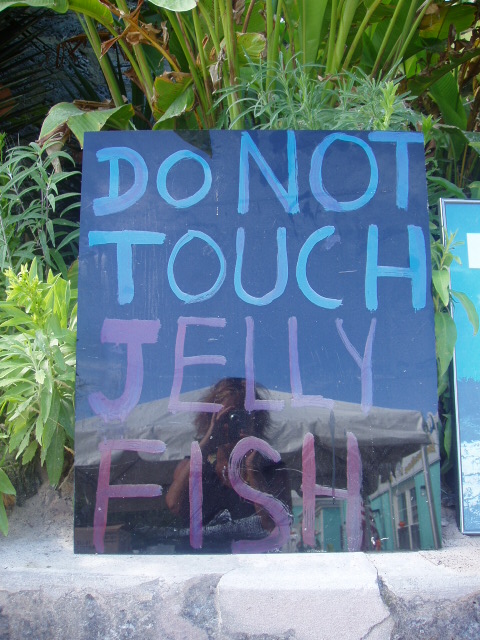 DO NOT
TOUCH
JELLY
FISH